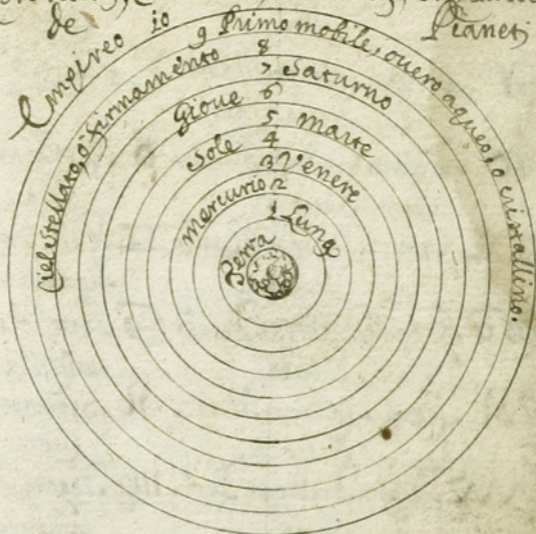 de Pianeti
Empireo 10
9 Primo mobile, overo aqueo, o cristallino.
Ciel stellato, o firmamento 8
7 Saturno
Giove 6
5 Marte
Sole 4
3 Venere
mercurio 2
1 Luna
Terra